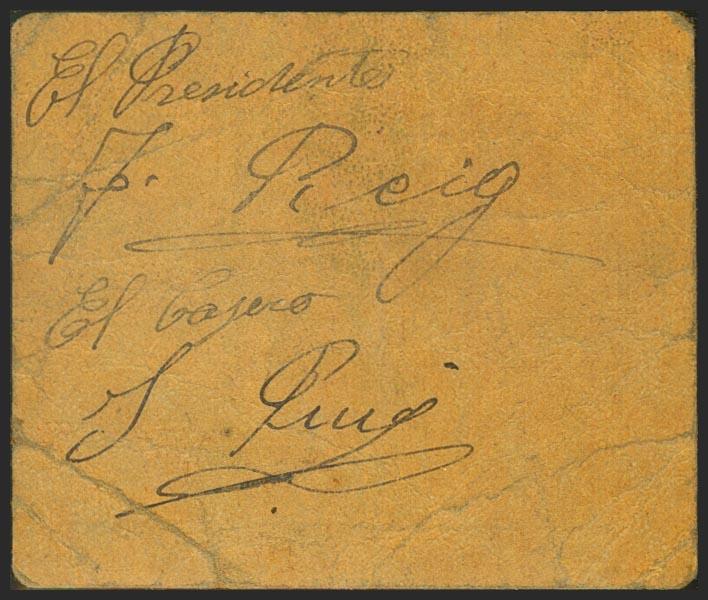 El Presidente
F. Reig
El Cajero
S Puig